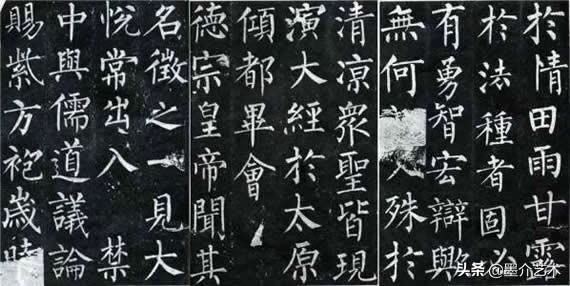 於情田雨甘露
於法種者固必
有勇智宏辯歟
無何殊於
清凉衆聖皆現
演大經於太原
傾都畢會
德宗皇帝聞其
名徵之一見大
悅常出入 禁
中與儒道議論
賜紫方袍歲時
头条 @墨介艺术